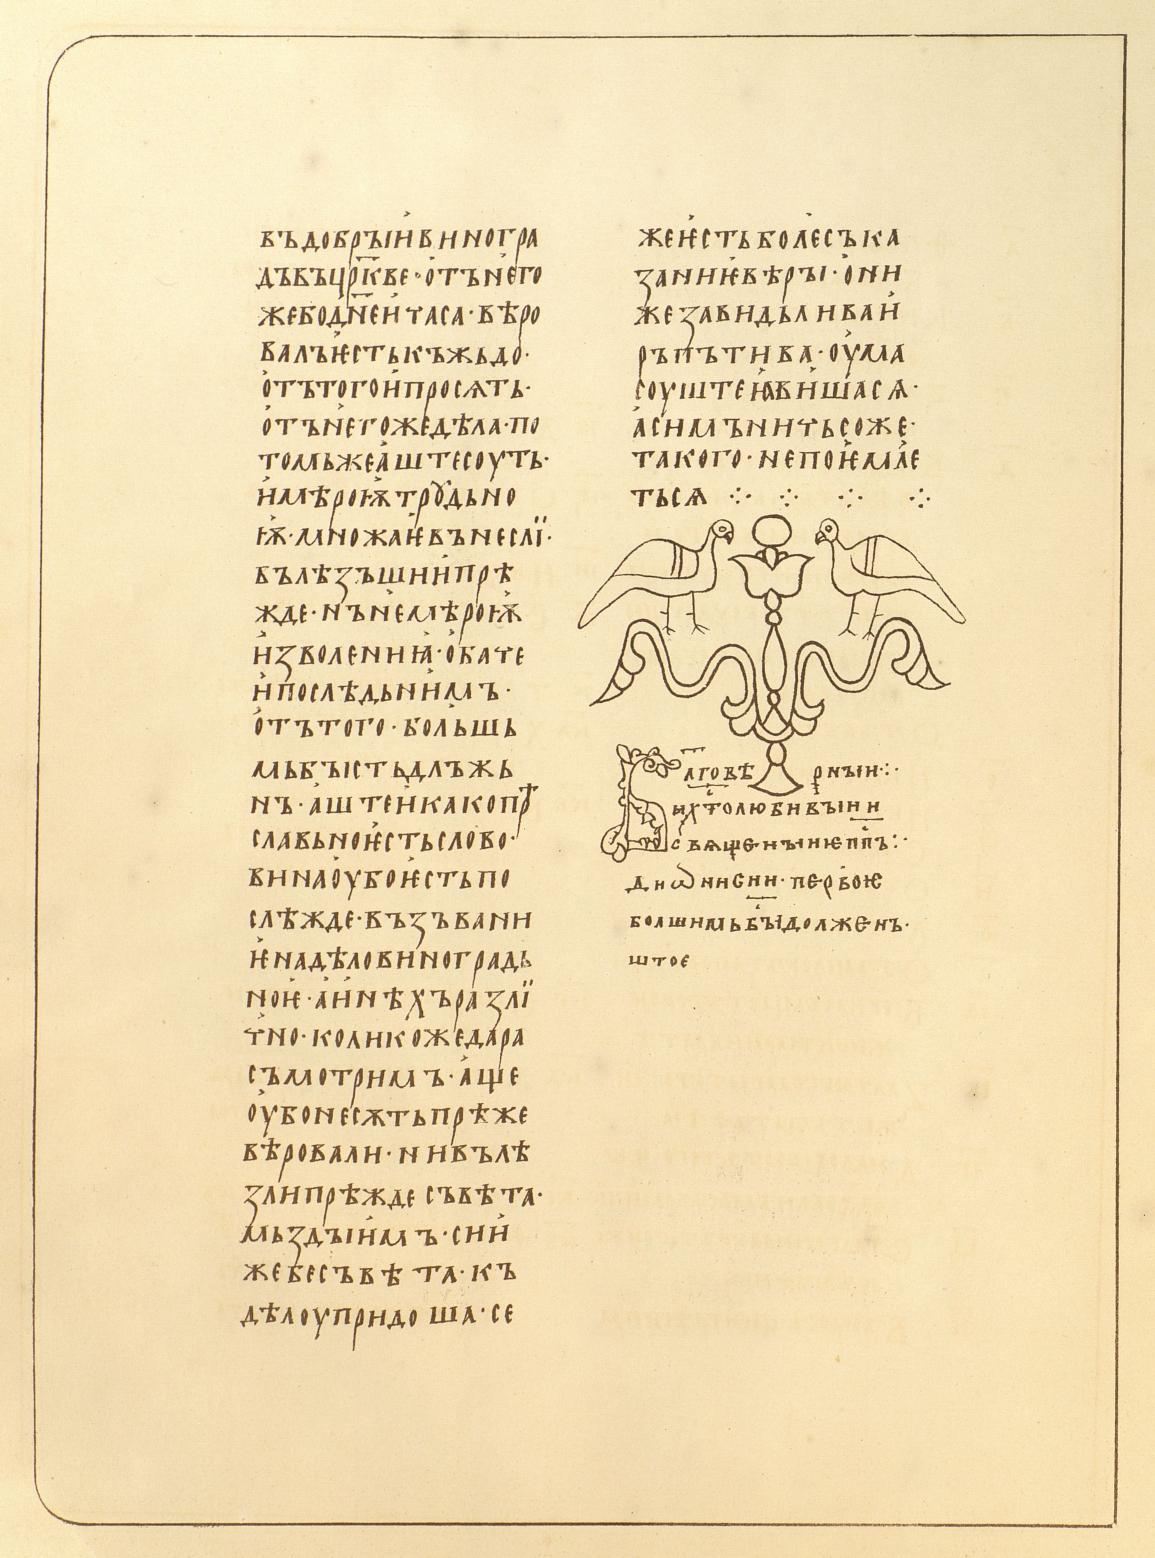 въдобрꙑи̇виногра
дъвъцр҃кве·отън̇его
жебодн҃еи̇ꙋаса·вѣро
валъѥстькъжьдо·
о̇тътогои̇просѧть·
отън̇егожедѣла·по
томьжеа̇штесоуть·
и̇мѣроѭтрѹдьно
ѭ·множаѥвънеслї·
вълѣзъшии̇прѣ
жде·нън̇емѣроѭ
и̇зволениꙗ·о̇баче
и̇послѣдьни̇мъ·
о̇тътого·большь
мьбꙑстьдлъжь
нъ·а̇штеи̇какопр
славьноѥстьслово·
винаоубоѥстьпо
слѣжде·възъвани
ѥнадѣловиноградь
ноѥ·а̇и̇нѣхъразлї
чно·коликожедара
съмотримъ·а̇ще
оу̇бонесѫтьпрѣже
вѣровали·нивълѣ
злипрѣждесъвѣта·
мьздꙑи̇мъ·сии̇
жебесъвѣта·къ
дѣлоупридоша·се
жеѥстьболесъка
заниѥвѣрꙑ·они
жезавидьливаи̇
ръпътива·оу̇ма
соуштеꙗви̇шасѧ·
а̇си̇мъничьсоже·
такого·непоѥмле
тьсѧ
Блговѣрнꙑи
ихт҃олюбивꙑии
свѧщенꙑиѥпп҃ъ
диѡнисии·первоѥ
болшимьбꙑдолженъ·
штое